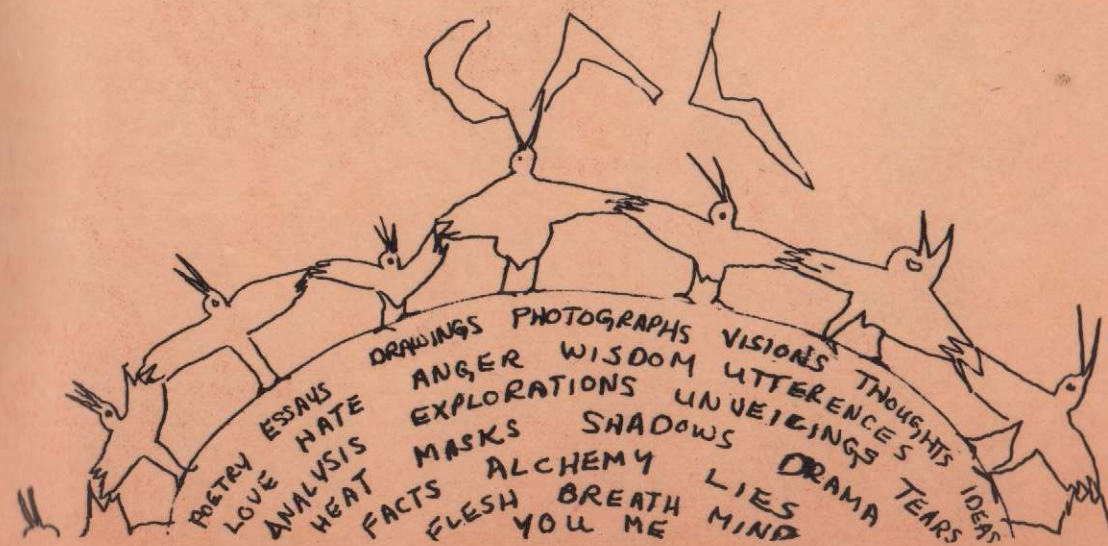 POETRY ESSAYS DRAWINGS PHOTOGRAPHS VISIONS THOUGHTS IDEAS
LOVE HATE ANGER WISDOM UTTERENCES TEARS
ANALYSIS EXPLORATIONS UNVEICINGS
HEAT MASKS SHADOWS DRAMA
FACTS ALCHEMY LIES
FLESH BREATH MIND
YOU ME